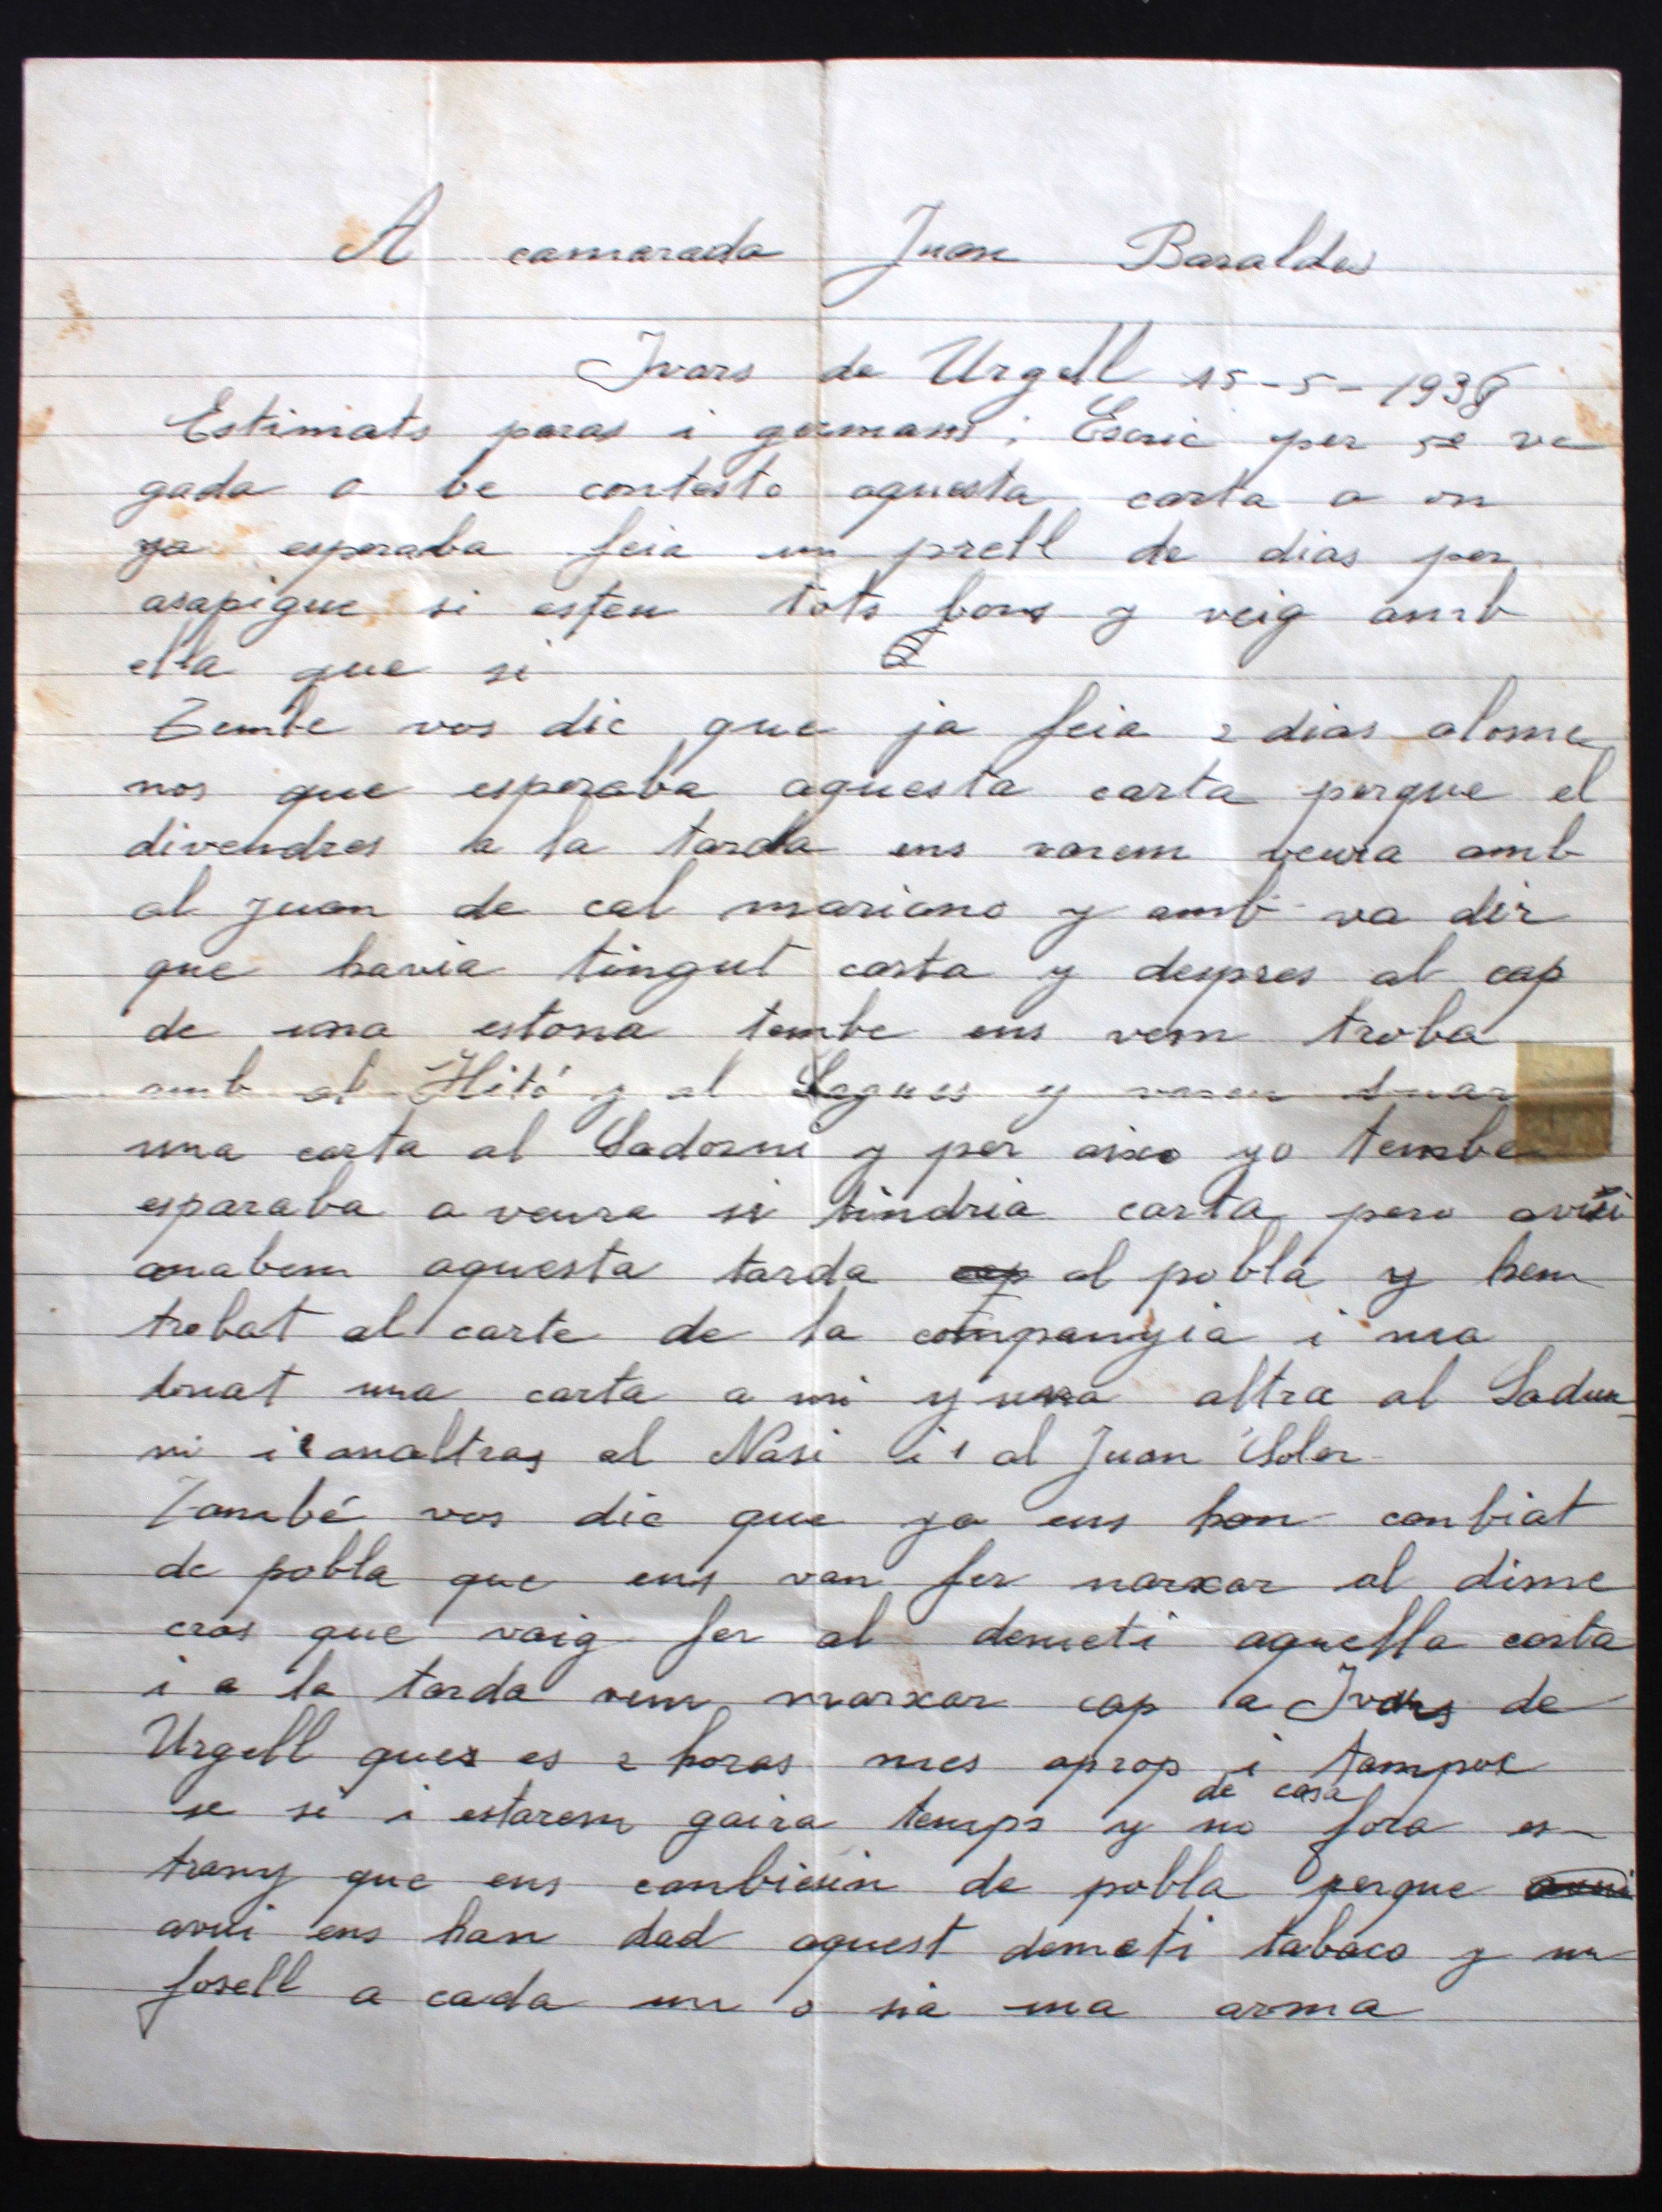 A camarada Juan Baraldes
Ivars de Urgell 15-5-1938
Estimats paras i germans; Escric per 5e ve
gada o be contesto aquesta carta a on
ya esperaba feia un prell de dias per
asapigue si esteu tots bons y veig amb
ella que si
Tembe vos dic que ja feia 2 dias alome
nos que esperaba aquesta carta perque el
divendres a la tarda ens varem veura amb
al Juan de cal mariano y amb va dir
que havia tingut carta y despres al cap
de una estona tembe ens vem troba
amb al Hitó y al Sagues y varen
una carta al Sadorni y per aixo yo tembe
esparaba a veura si tindria carta pero avui
anabem aquesta tarda cap al pobla y hem
trobat al carte de la companyia i ma
dnat una carta a mi y una altra al Sadur-
ni i analtras al Nasi i al Juan Soler
També vos dic que ja ens han canbiat
de pobla que ens van fer marxar al dime
cras que vaig fer al demeti aquella carta
i a la tarda vem marxar cap a Ivars de
Urgell ques es 2 horas mes aprop i tampoc
de casa
se si i estarem gaira temps y no fora es-
trany que ens canbiesin de pobla perque avui
avui ens han dad aquest demeti tabaco y un
fosell a cada un o sia una arma